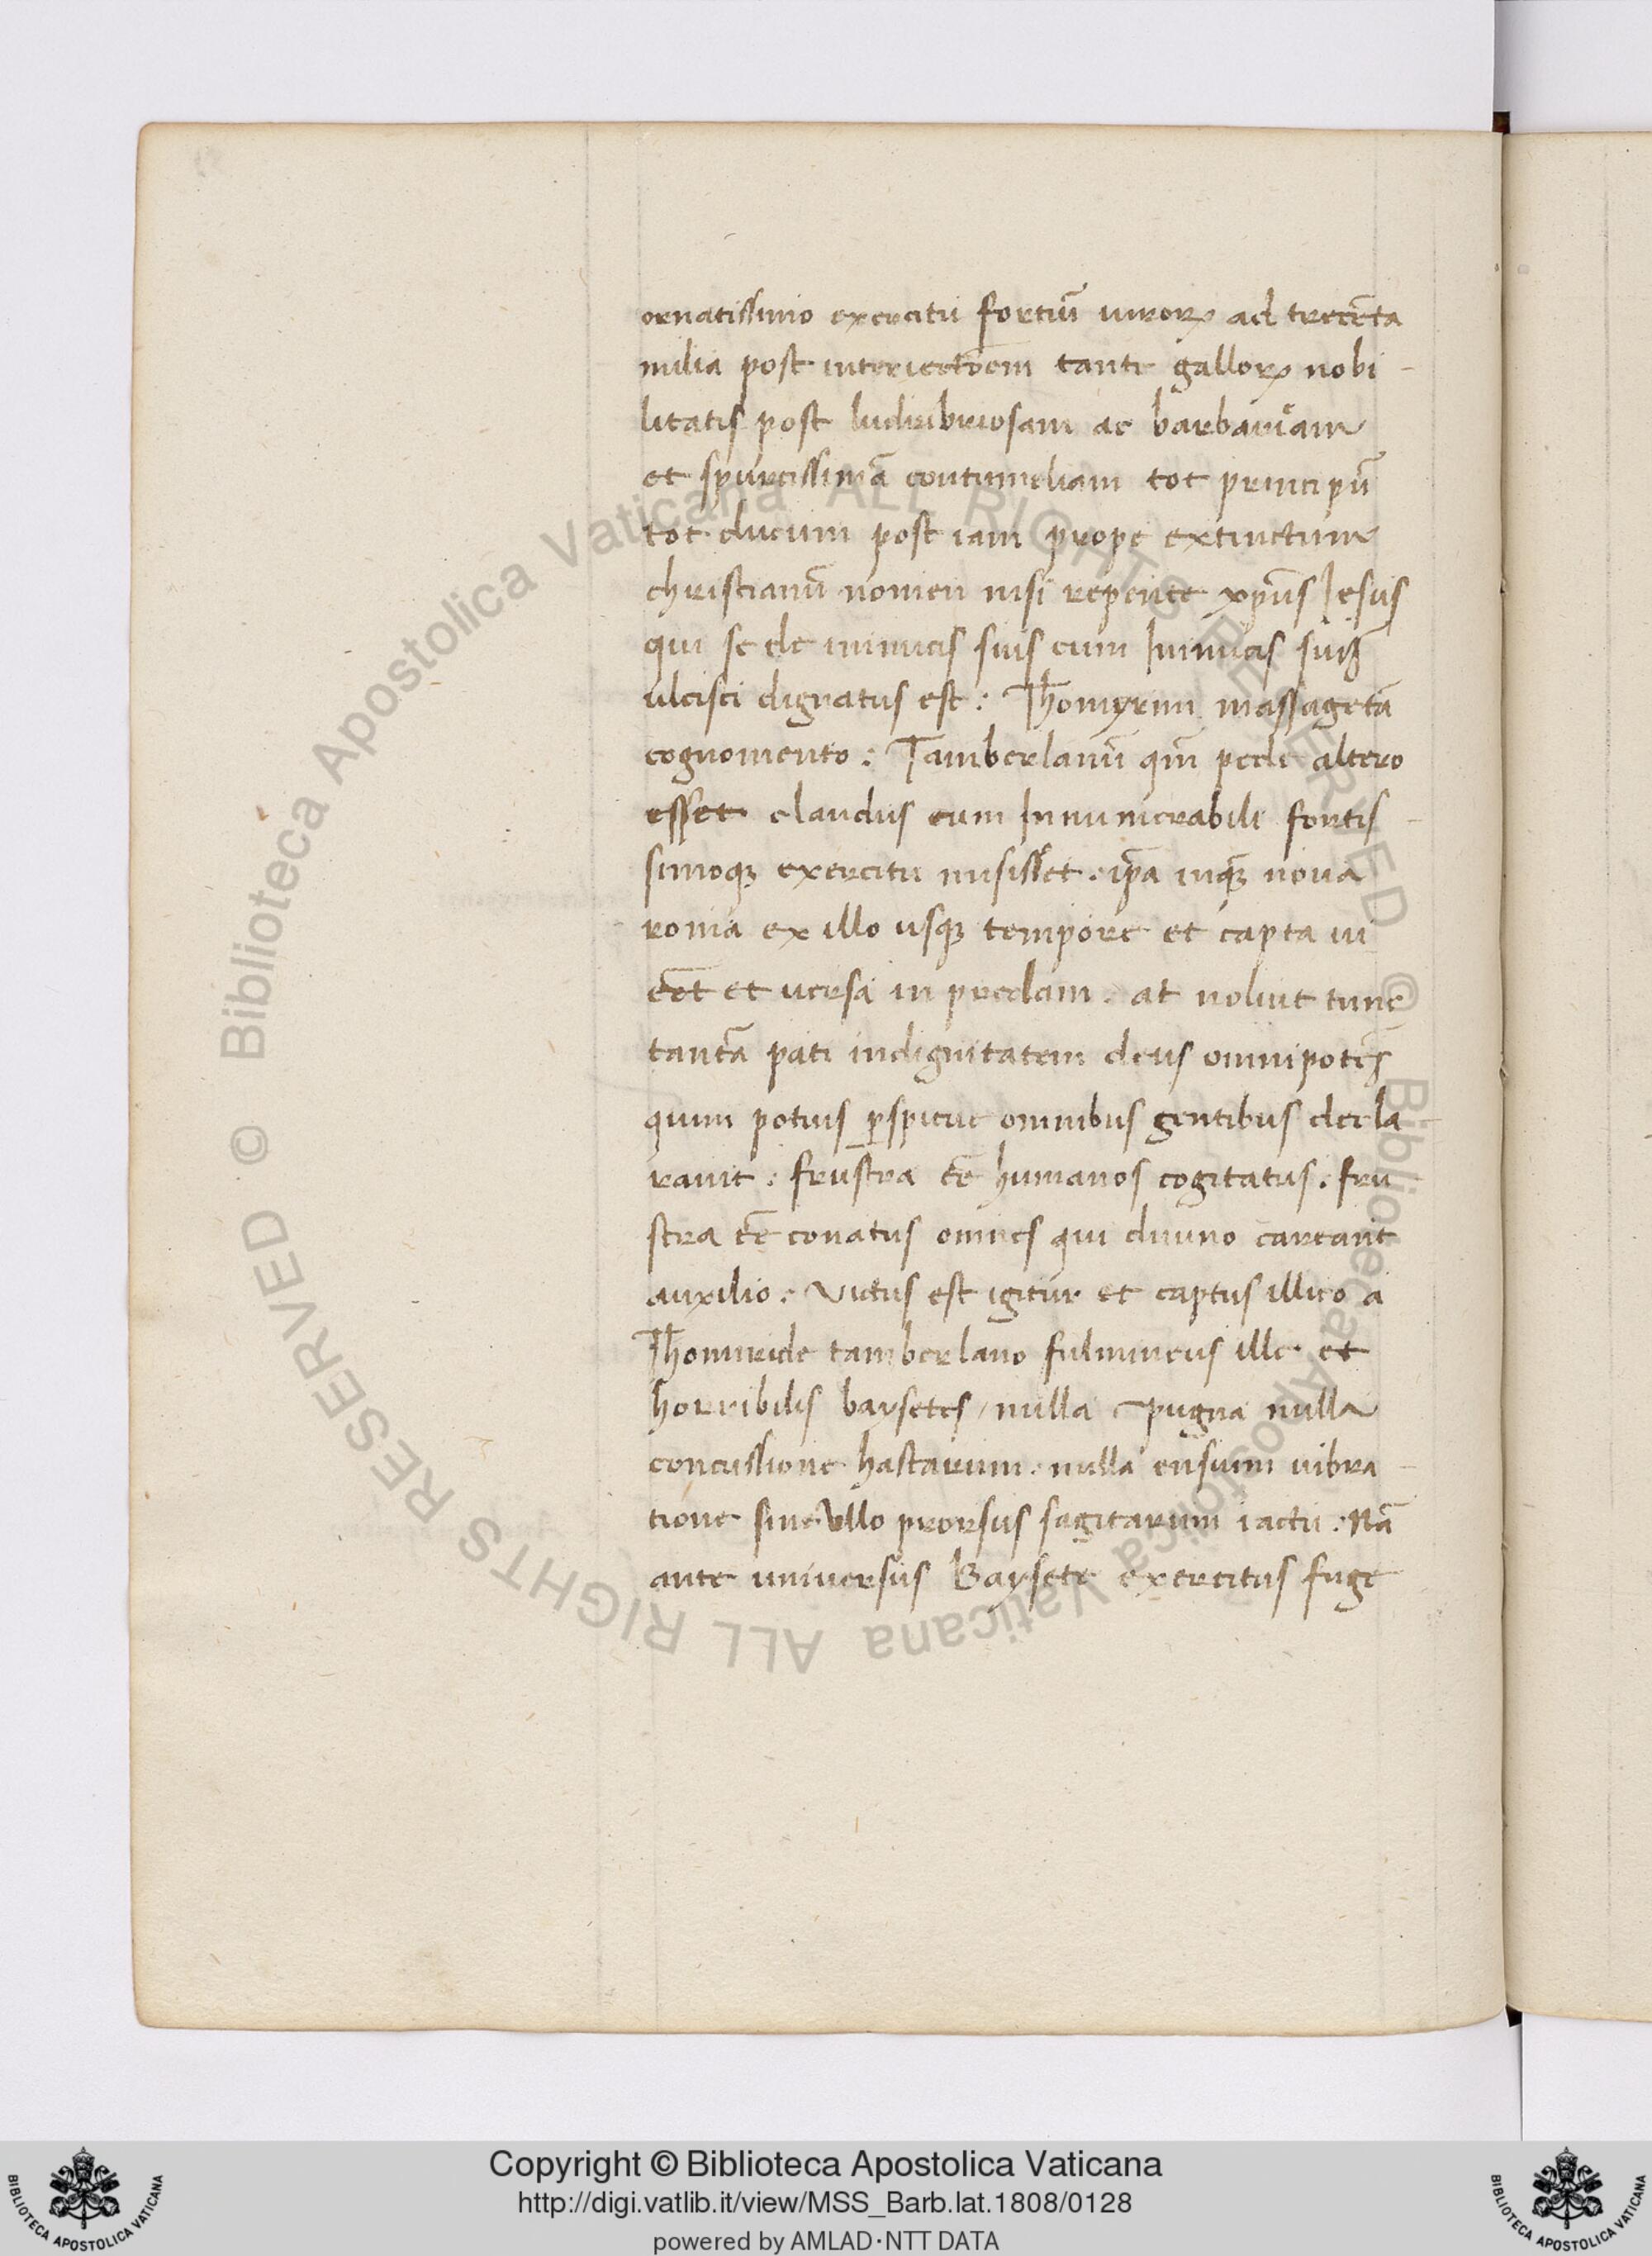 ornatissimo exercitu fortiū uiroꝝ ad trecẽta
milia post interiectōem tante galloꝝ nobi-
litatis post ludribriosam ac barbariām
et spurcissimā contumeliam tot principū
tot ducum post iam prope extinctum
christianū nomen nisi repente xp̄us Iesus
qui se de inimicis suis cum Inimicis suis
ulcisci dignatus est: Thomyrim massagetā
cognomento: Tamberlanū qm̄ pede altero
esset claudus cum Innumerabili fortis-
simoqꝫ exercitu misisset. ip̄a inqꝫ noua
roma ex illo usqꝫ tempore et capta ui
eēt et uersa in predam. at noluit tunc
tantā pati indignitatem deus omnipotēs
quum potius ꝑspicue omnibus gentibus decla-
rauit: frustra eē humanos cogitatus. fru
stra eē conatus omnes qui diuino careant
auxilio: Victus est igitur et captus illico a
Thomiride tamberlano fulmineus ille et
horribilis baysetes, nulla pugna nulla
concussione hastarum. nulla ensium uibra-
tione sine Vllo prorsus sagitarum iactu: Nā
ante uniuersus Baysete exercitus fuge
Copyright © Biblioteca Apostolica Vaticana
http://digi.vatlib.it/view/MSS_Barb.lat.1808/0128
powered by AMLAD·NTT DATA
BIBLIOTECA APOSTOLICA VATICANA
BIBLIOTECA APOSTOLICA VATICANA
© Biblioteca Apostolica Vaticana ALL RIGHTS RESERVED © Biblioteca Apostolica Vaticana ALL RIGHTS RESERVED